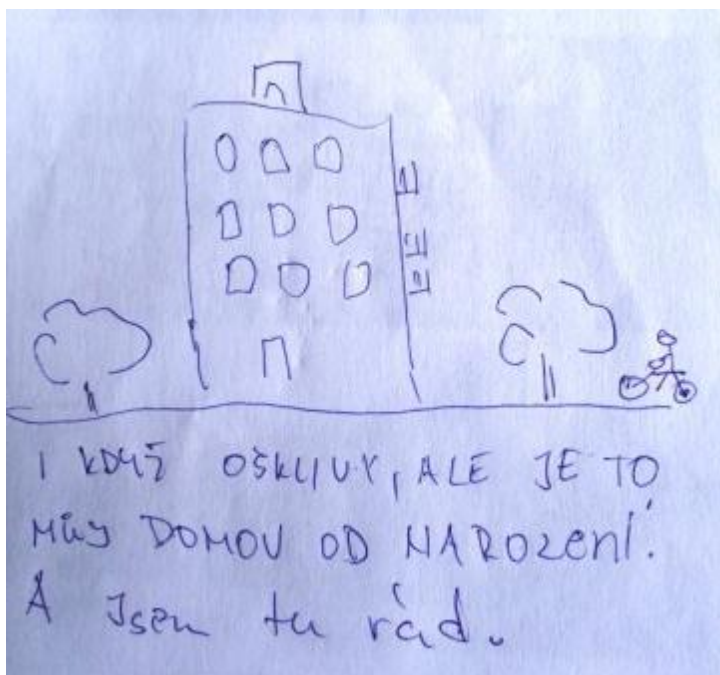 I KDYŽ OŠKLIVÝ, ALE JE TO
MŮJ DOMOV OD NAROZENÍ.
A JSEM tu rád.